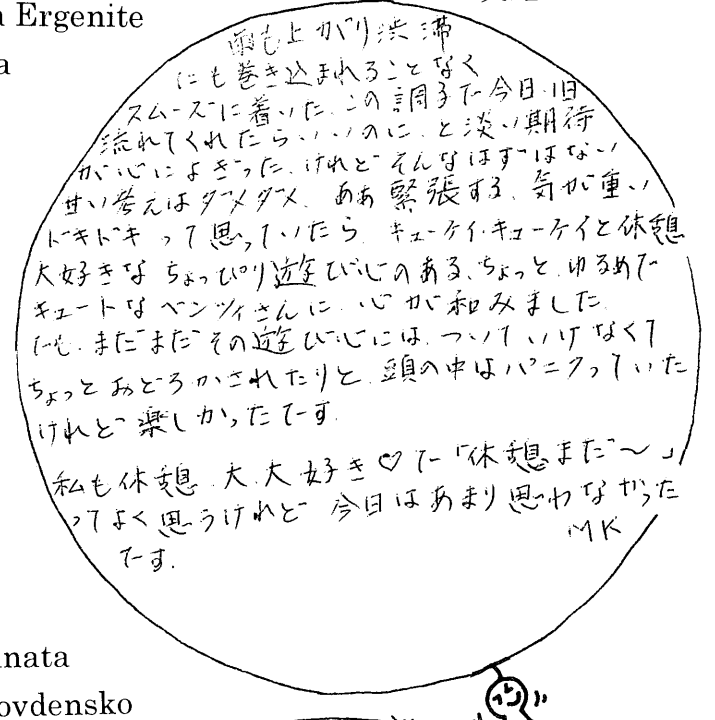 a Ergenite
a
雨も上がり渋滞
にも巻き込まれることなく
スムーズに着いた.この調子で今日1日
流れてくれたらいいのに.と淡い期待
が心によぎった.けれどそんなはずはない
甘い考えはダメダメ.ああ緊張する.気が重い
ドキドキって思っていたら.キューケイ・キューケイと休憩
大好きなちょっぴり遊び心のある.ちょっとゆるめで
キュートなベンツィさんに.心が和みました.
でも.まだまだその遊び心には.ついていけなくて
ちょっとおどろかされたりと.頭の中はパニクっていた
けれど楽しかったでーす.
私も休憩.大.大好き♡で「休憩まだ〜」
ってよく思うけれど今日はあまり思わなかった
でーす.
MK
nata
ovdensko